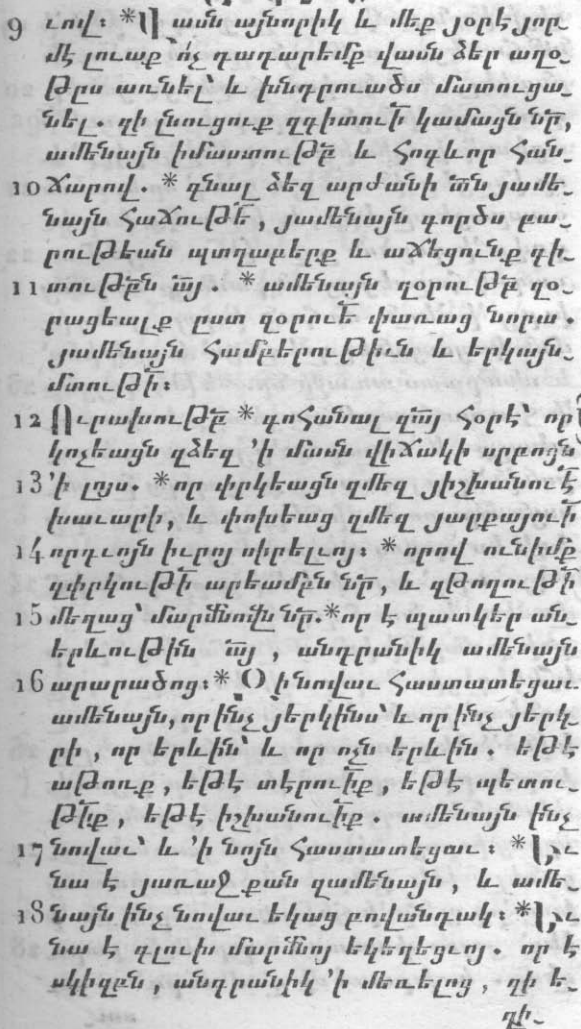 9 ւով։ *Վասն այնորիկ և մեք յօրէ յոր֊
մէ լուաք՝ ոչ դադարեմք վասն ձեր աղօ֊
թըս առնել՝ և խնդրուածս մատուցա֊
նել. զի լնուցուք զգիտուի կամացն նր,
ամենայն իմաստութբ և հոգևոր հան֊
10 ճարով. * գնալ ձեզ արժանի տն յամե֊
նայն հաճութե, յամենայն գործս բա֊
րութեան պտղաբերք և աճեցունք գի֊
11 տութբն այ. * ամենայն զօրութբ զօ֊
րացեալք ըստ զօրուե փառաց նորա.
յամենայն համբերութիւն և երկայն֊
մտութի։
12 Ուրախութբ * գոհանալ զայ հօրէ՝ որ
կոչեացն զձեզ ՚ի մասն վիճակի սրբոցն
13 ՚ի լոյս. *որ փրկեացն զմեզ յիշխանուե
խաւարի, և փոխեաց զմեզ յարքայուի
14 որդւոյն իւրոյ սիրելւոյ։ *որով ունիմք
զփրկութի արեամբն նր, և զթողութի
15 մեղաց՝ մարմնովն նր.*որ է պատկեր ան֊
երևութին այ, անդրանիկ ամենայն
16 արարածոց։*Զի նովաւ հաստատեցաւ
ամենայն, որ ինչ յերկինս՝ և որ ինչ յերկ֊
րի, որ երևին՝ և որ ոչն երևին. եթէ
աթոռք, եթէ տէրուիք, եթէ պետու֊
թիք, եթէ իշխանուիք. ամենայն ինչ
17 նովաւ՝ և ՚ի նոյն հաստատեցաւ։ *Եւ
նա է յառաջ քան զամենայն, և ամե֊
18 նայն ինչ նովաւ եկաց բովանդակ։ *Եւ
նա է գլուխ մարմնոյ եկեղեցւոյ. որ է
սկիզբն, անդրանիկ ՚ի մեռելոց, զի ե֊
ղի֊